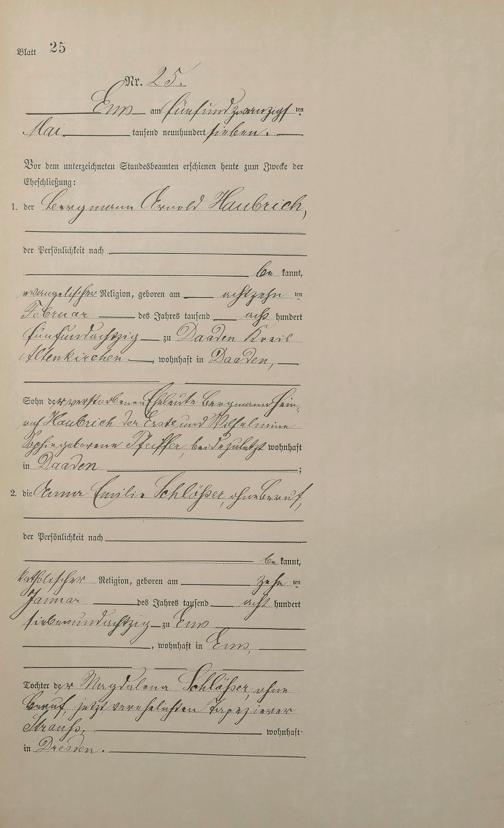 Blatt 25
Nr. 25.
Ems am fünfundzwanzigsten
Mai tausend neunhundert sieben.
Vor dem unterzeichneten Standesbeamten erschienen heute zum Zwecke der
Eheschließung:
1. der Bergmann Arnold Haubrich,
der Persönlichkeit nach
be kannt,
evangelischer Religion, geboren am achtzehn ten
Februar des Jahres tausend acht hundert
fünfundachtzig zu Daaden Kreis
Altenkirchen, wohnhaft in Daaden,
Sohn der verstorbenen Eheleute Bergmann Hein-
rich Haubrich der Erste und Wilhelmine
Sophie geborene Pfeiffer, beide zuletzt wohnhaft
in Daaden ;
2. die Anna Emilie Schlößer, ohne Beruf,
der Persönlichkeit nach
be kannt,
katholischer Religion, geboren am zehn ten
Januar des Jahres tausend acht hundert
siebenundachtzig zu Ems
, wohnhaft in Ems,
Tochter der Magdalena Schlößer, ohne
Beruf, jetzt verehelichten Tapezierer
Strauß, wohnhaft
in Dresden.